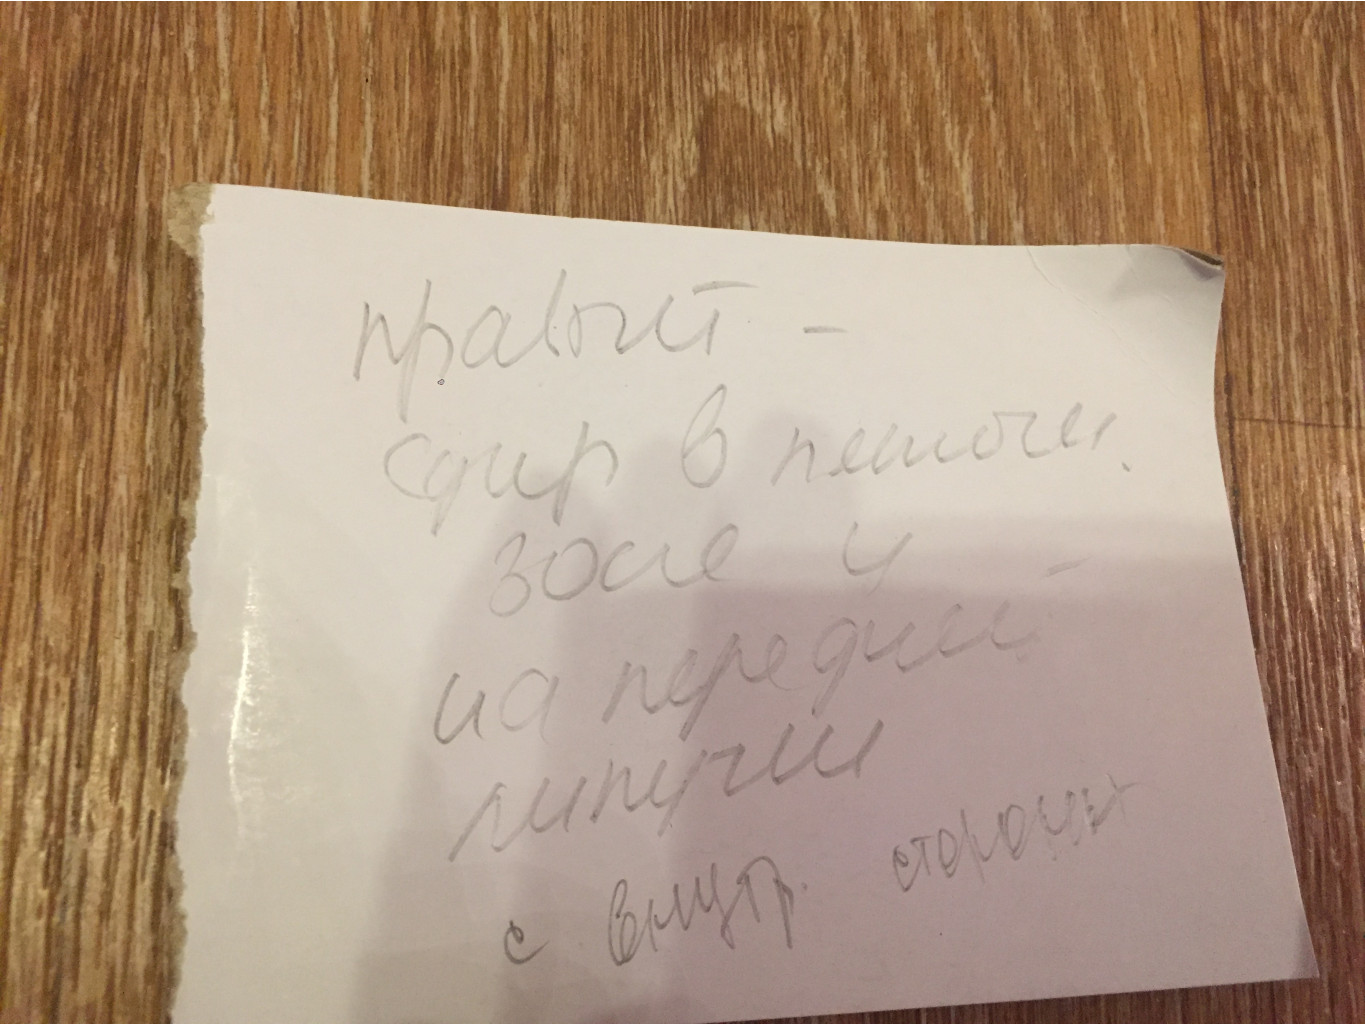 правый -
сдир в пяточн.
зоне и
на передней
липучки
с внутр. стороны